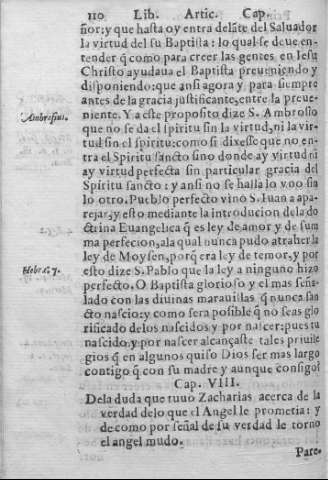 110 Lib. Artic. Cap.
ñor: y que hasta oy entra delãte del Saluador
la virtud del su Baptista: lo qual se deue en-
tender q̃ como para creer las gentes en Iesu
Christo ayudaua el Baptista preueniendo y
disponiendo: que ansi agora y para siempre
antes de la gracia justificante, entre la preue-
niente. Y a este proposito dize S. Ambrosio
Ambrosius.
que no se da el spiritu sin la virtud, ni la vir-
tud sin el spiritu: como si dixesse que no en-
tra el Spiritu sancto sino donde ay virtud ni
ay virtud perfecta sin particular gracia del
Spiritu sancto: y ansi no se halla lo vno sin
lo otro. Pueblo perfecto vino S. Iuan a apa-
rejar, y esto mediante la introducion dela do
ctrina Euangelica q̃ es ley de amor y de sum
ma perfecion, a la qual nunca pudo atraher la
ley de Moysen, porq̃ era ley de temor, y por
Hebre. 7.
esto dize S. Pablo que la ley a ninguno hizo
perfecto. O Baptista glorioso y el mas seña-
lado con las diuinas marauillas q̃ nunca san
cto nascio: y como sera posible q̃ no seas glo
rificado delos nascidos y por nascer: pues tu
nascido, y por nascer alcançaste tales priuile
gios q̃ en algunos quiso Dios ser mas largo
contigo q̃ con su madre y aunque consigo?
Cap. VIII.
Dela duda que tuuo Zacharias acerca de la
verdad delo que el Angel le prometia: y
de como por señal de su verdad le torno
el angel mudo.
Pare-